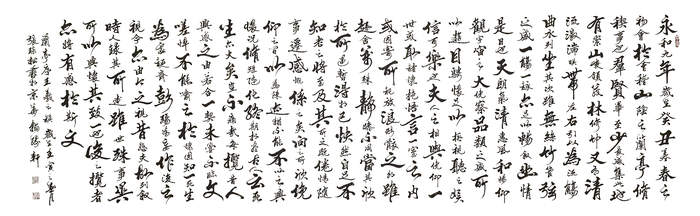 永和九年歲在癸丑暮春之
初會於會稽山陰之蘭亭修
稧事也群賢畢至少長咸集此地
有崇山峻領茂林修竹又有清
流激湍暎帶左右引以為流觴
曲水列坐其次雖無絲竹管弦
之盛一觴一詠亦足以暢敘幽情
是日也天朗氣清惠風和暢仰
觀宇宙之大俯察品類之盛所
以遊目騁懷足以極視聽之娛
信可樂也夫人之相與俯仰一
世或取諸懷抱悟言一室之內
或因寄所託放浪形骸之外雖
趣舍萬殊靜躁不同當其欣
於所遇暫得於己快然自足不
知老之將至及其所之既倦情隨
事遷感慨係之矣向之所欣俛
仰之間以為陳迹猶不能不以之興
懷況脩短隨化終期於盡古人云死
生亦大矣豈不痛哉每攬昔人
興感之由若合一契未嘗不臨文
嗟悼不能喻之於懷固知一死生
為虛誕齊彭殤為妄作後之
視今亦由今之視昔悲夫故列敘
時人錄其所述雖世殊事異
所以興懷其致一也後之攬者
亦將有感於斯文
蘭亭序王羲之撰歲在壬寅之
張松書於京華軒